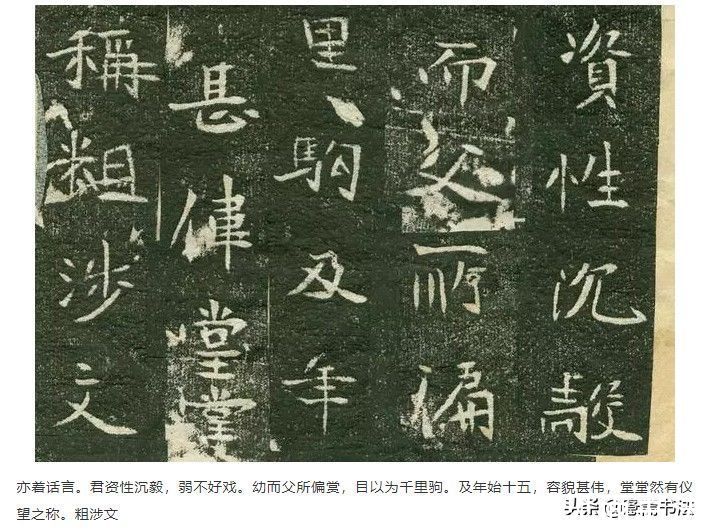 資性沉毅
而父所偏
里駒及年
甚偉堂堂
稱粗涉文
亦着话言。君资性沉毅，弱不好戏。幼而父所偏赏，目以为千里驹。及年始十五，容貌甚伟，堂堂然有仪
望之称。粗涉文
头条 @书法